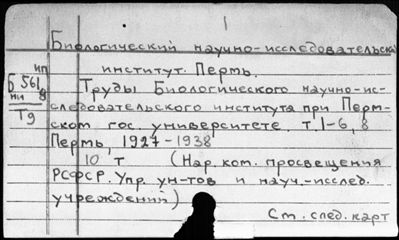 Биологический научно-исследовательск
институт. Пермь.
ип
Б 561
8
Т9
Труды Биологического научно-ис-
следовательского института при Перм-
ском гос. университете. т. 1-6, 8
Пермь, 1927-1938
10 т (Нар. ком. просвещения
РСФСР. Упр. ун-тов и науч.-исслед.
учреждений)
См. след. карт